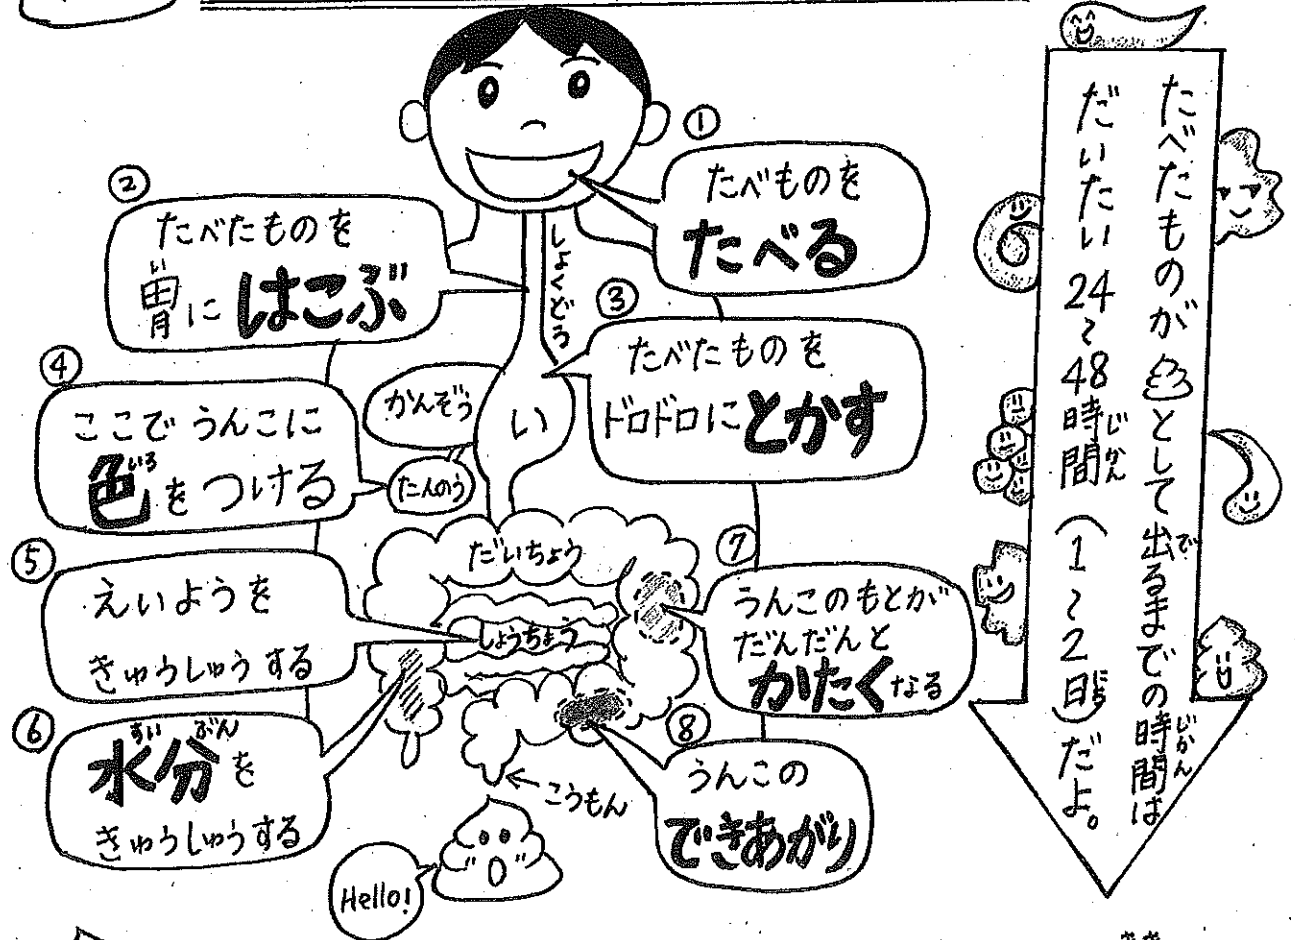 ①
たべものを
たべる
②
たべたものを
胃にはこぶ
い
しょくどう
③
たべたものを
ドロドロにとかす
い
④
ここでうんこに
色をつける
いろ
かんぞう
たんのう
だいちょう
⑤
えいようを
きゅうしゅうする
しょうちょう
⑥
水分を
すいぶん
きゅうしゅうする
⑦
うんこのもとが
だんだんと
かたくなる
⑧
うんこの
できあがり
こうもん
Hello!
たべたものがとして出るまでの時間は
で
じかん
だいたい24〜48時間(1〜2日)だよ。
じかん